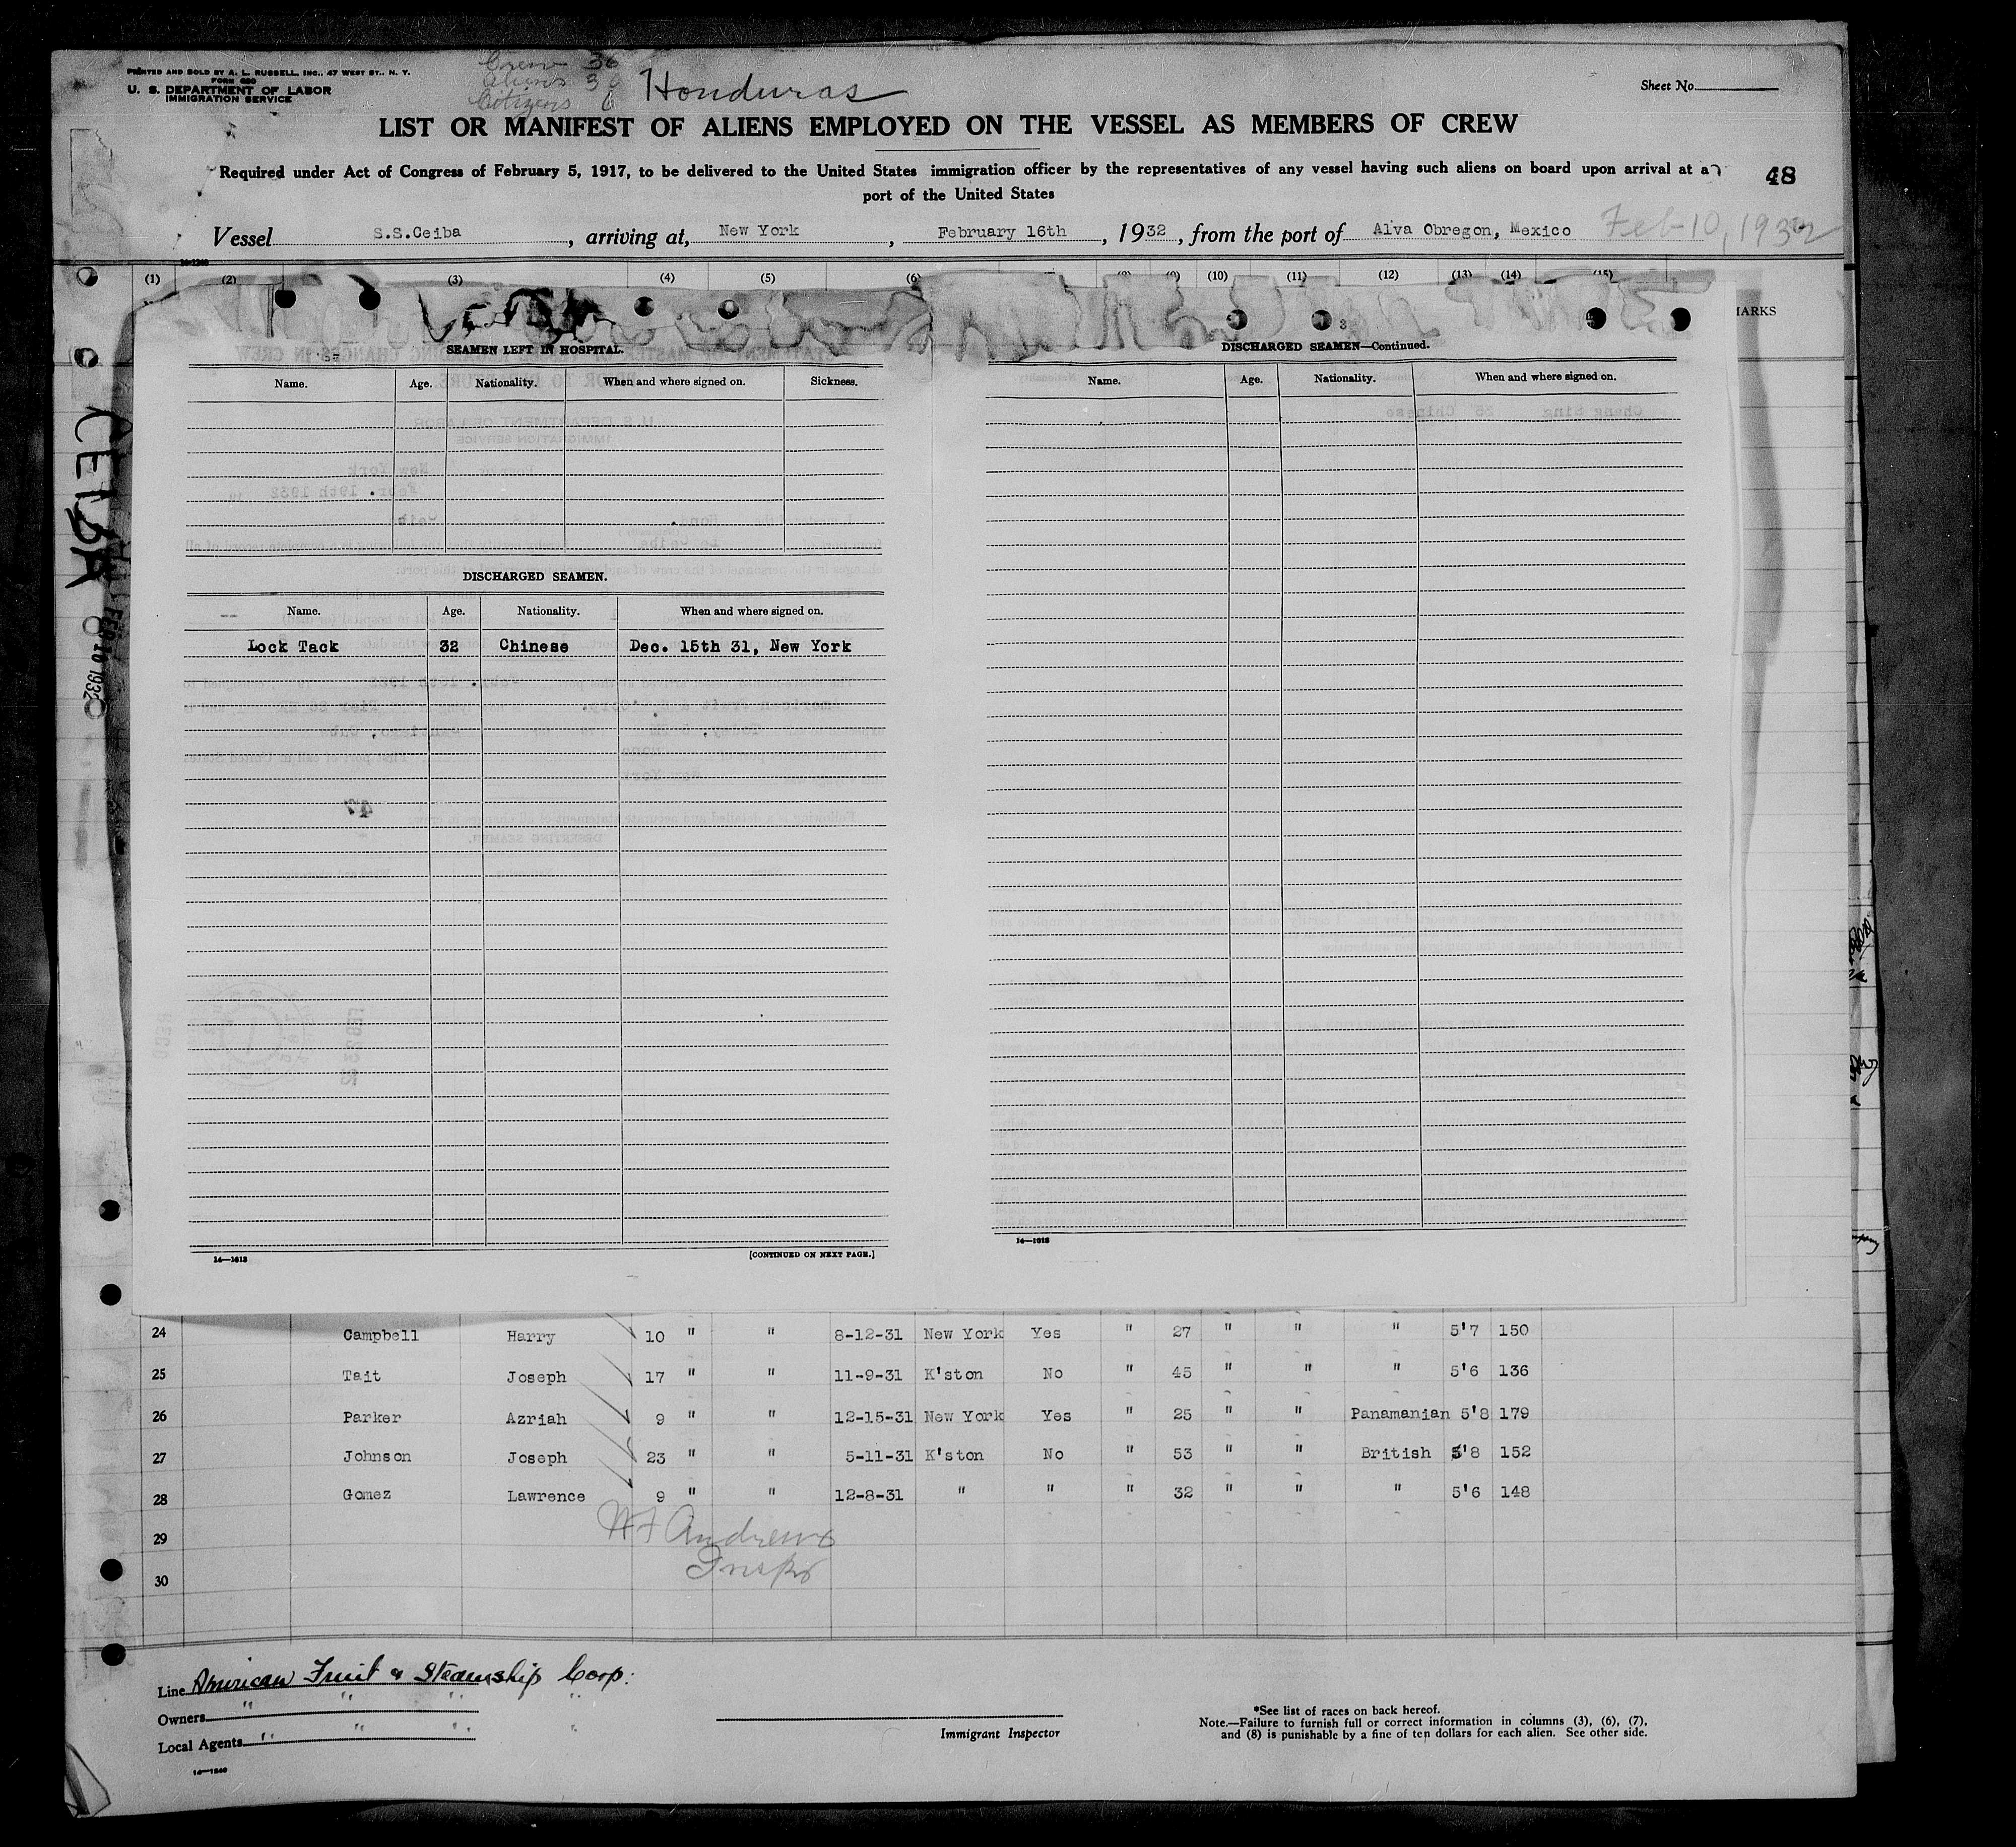 PRINTED AND SOLD BY A. L. RUSSELL, INC., 47 WEST ST., N. Y.
FORM 680
U. S. DEPARTMENT OF LABOR
IMMIGRATION SERVICE
Crew 36
Aliens 30
Citizens 6
Honduras
Sheet No.
LIST OR MANIFEST OF ALIENS EMPLOYED ON THE VESSEL AS MEMBERS OF CREW
Required under Act of Congress of February 5, 1917, to be delivered to the United States immigration officer by the representatives of any vessel having such aliens on board upon arrival at a
port of the United States
48
Vessel S.S.Ceiba, arriving at, New York, February 16th, 1932, from the port of Alva Obregon, Mexico Feb 10, 1932
(1) (2) (3) (4) (5) (6) (8) (9) (10) (11) (12) (13) (14) (15)
ARKS
CEIBA
FEB 16 1932
SEAMEN LEFT IN HOSPITAL.
Name. Age. Nationality. When and where signed on. Sickness.
DISCHARGED SEAMEN.
Name. Age. Nationality. When and where signed on.
Lock Tack 32 Chinese Dec. 15th 31, New York
14—1613
[CONTINUED ON NEXT PAGE.]
3
DISCHARGED SEAMEN—Continued.
Name. Age. Nationality. When and where signed on.
14—1613
24 Campbell Harry 10 " " 8-12-31 New York Yes " 27 " " " 5'7 150
25 Tait Joseph 17 " " 11-9-31 K'ston No " 45 " " " 5'6 136
26 Parker Azriah 9 " " 12-15-31 New York Yes " 25 " " Panamanian 5'8 179
27 Johnson Joseph 23 " " 5-11-31 K'ston No " 53 " " British 5'8 152
28 Gomez Lawrence 9 " " 12-8-31 " " " 32 " " " 5'6 148
29
30
Andrews
Inspr
Line American Fruit & Steamship Corp.
Owners " " " "
Local Agents " " " "
14—1240
Immigrant Inspector
*See list of races on back hereof.
Note.—Failure to furnish full or correct information in columns (3), (6), (7),
and (8) is punishable by a fine of ten dollars for each alien. See other side.